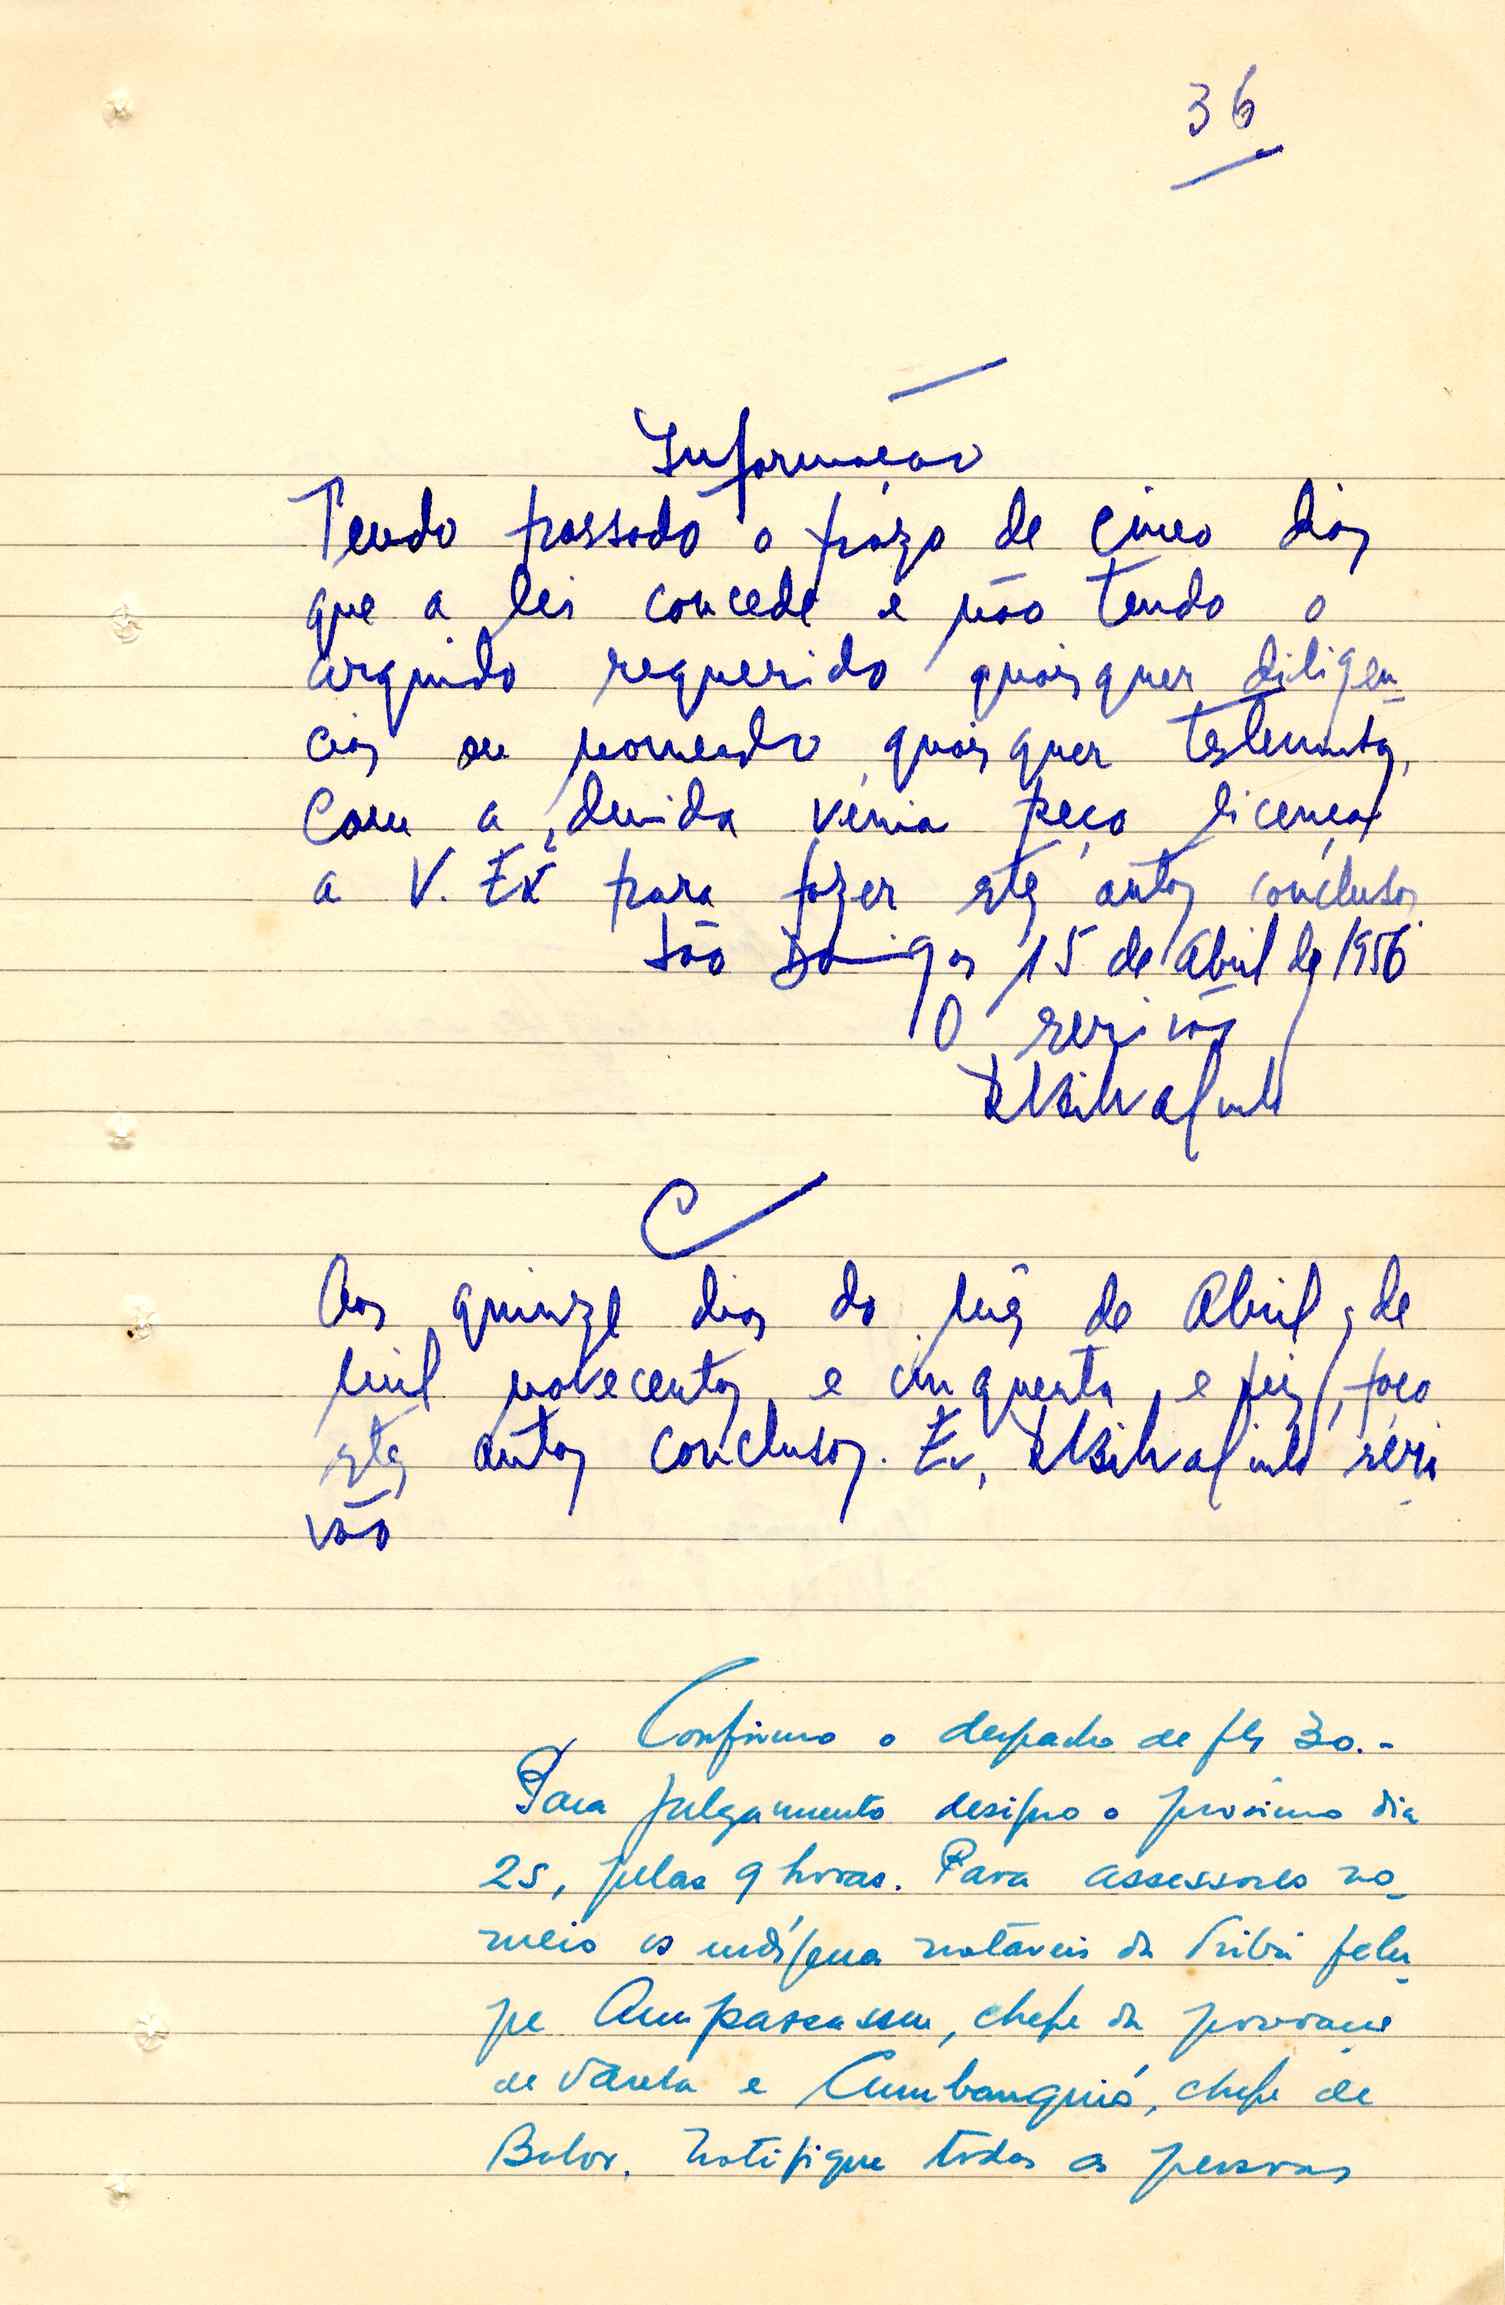 36
Informação
Tendo passado o prazo de cinco dias
que a lei concede e não tendo o
arguido requerido quaisquer diligen-
cias ou nomeado quaisquer testemunhas,
Com a devida vénia peço licença
a V. Exª para fazer estes autos conclusos
São Domingos 15 de Abril de 1956
O escrivão
C
Aos quinze dias do mês de Abril, de
mil novecentos e cinquenta e seis, faço
estes autos conclusos. Eu, escri
vão
Confirmo o despacho de fls 30.-
Para julgamento designo o próximo dia
25, pelas 9 horas. Para assessores no-
meio os indígenas notáveis da tribu felu-
pe chefe da povoação
de Varela e Cumbanquió, chefe de
Bolor. Notifique todas as pessoas